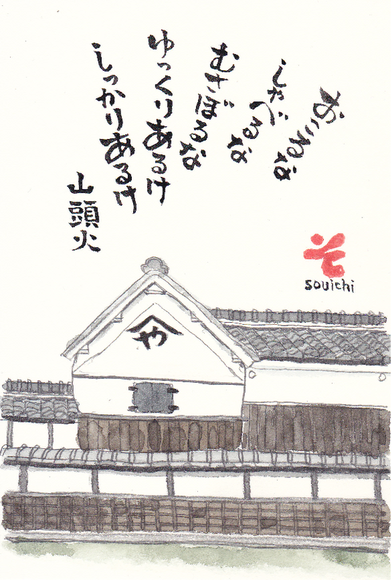 おこるな
しゃべるな
むさぼるな
ゆっくりあるけ
しっかりあるけ
山頭火
そ
souichi
や